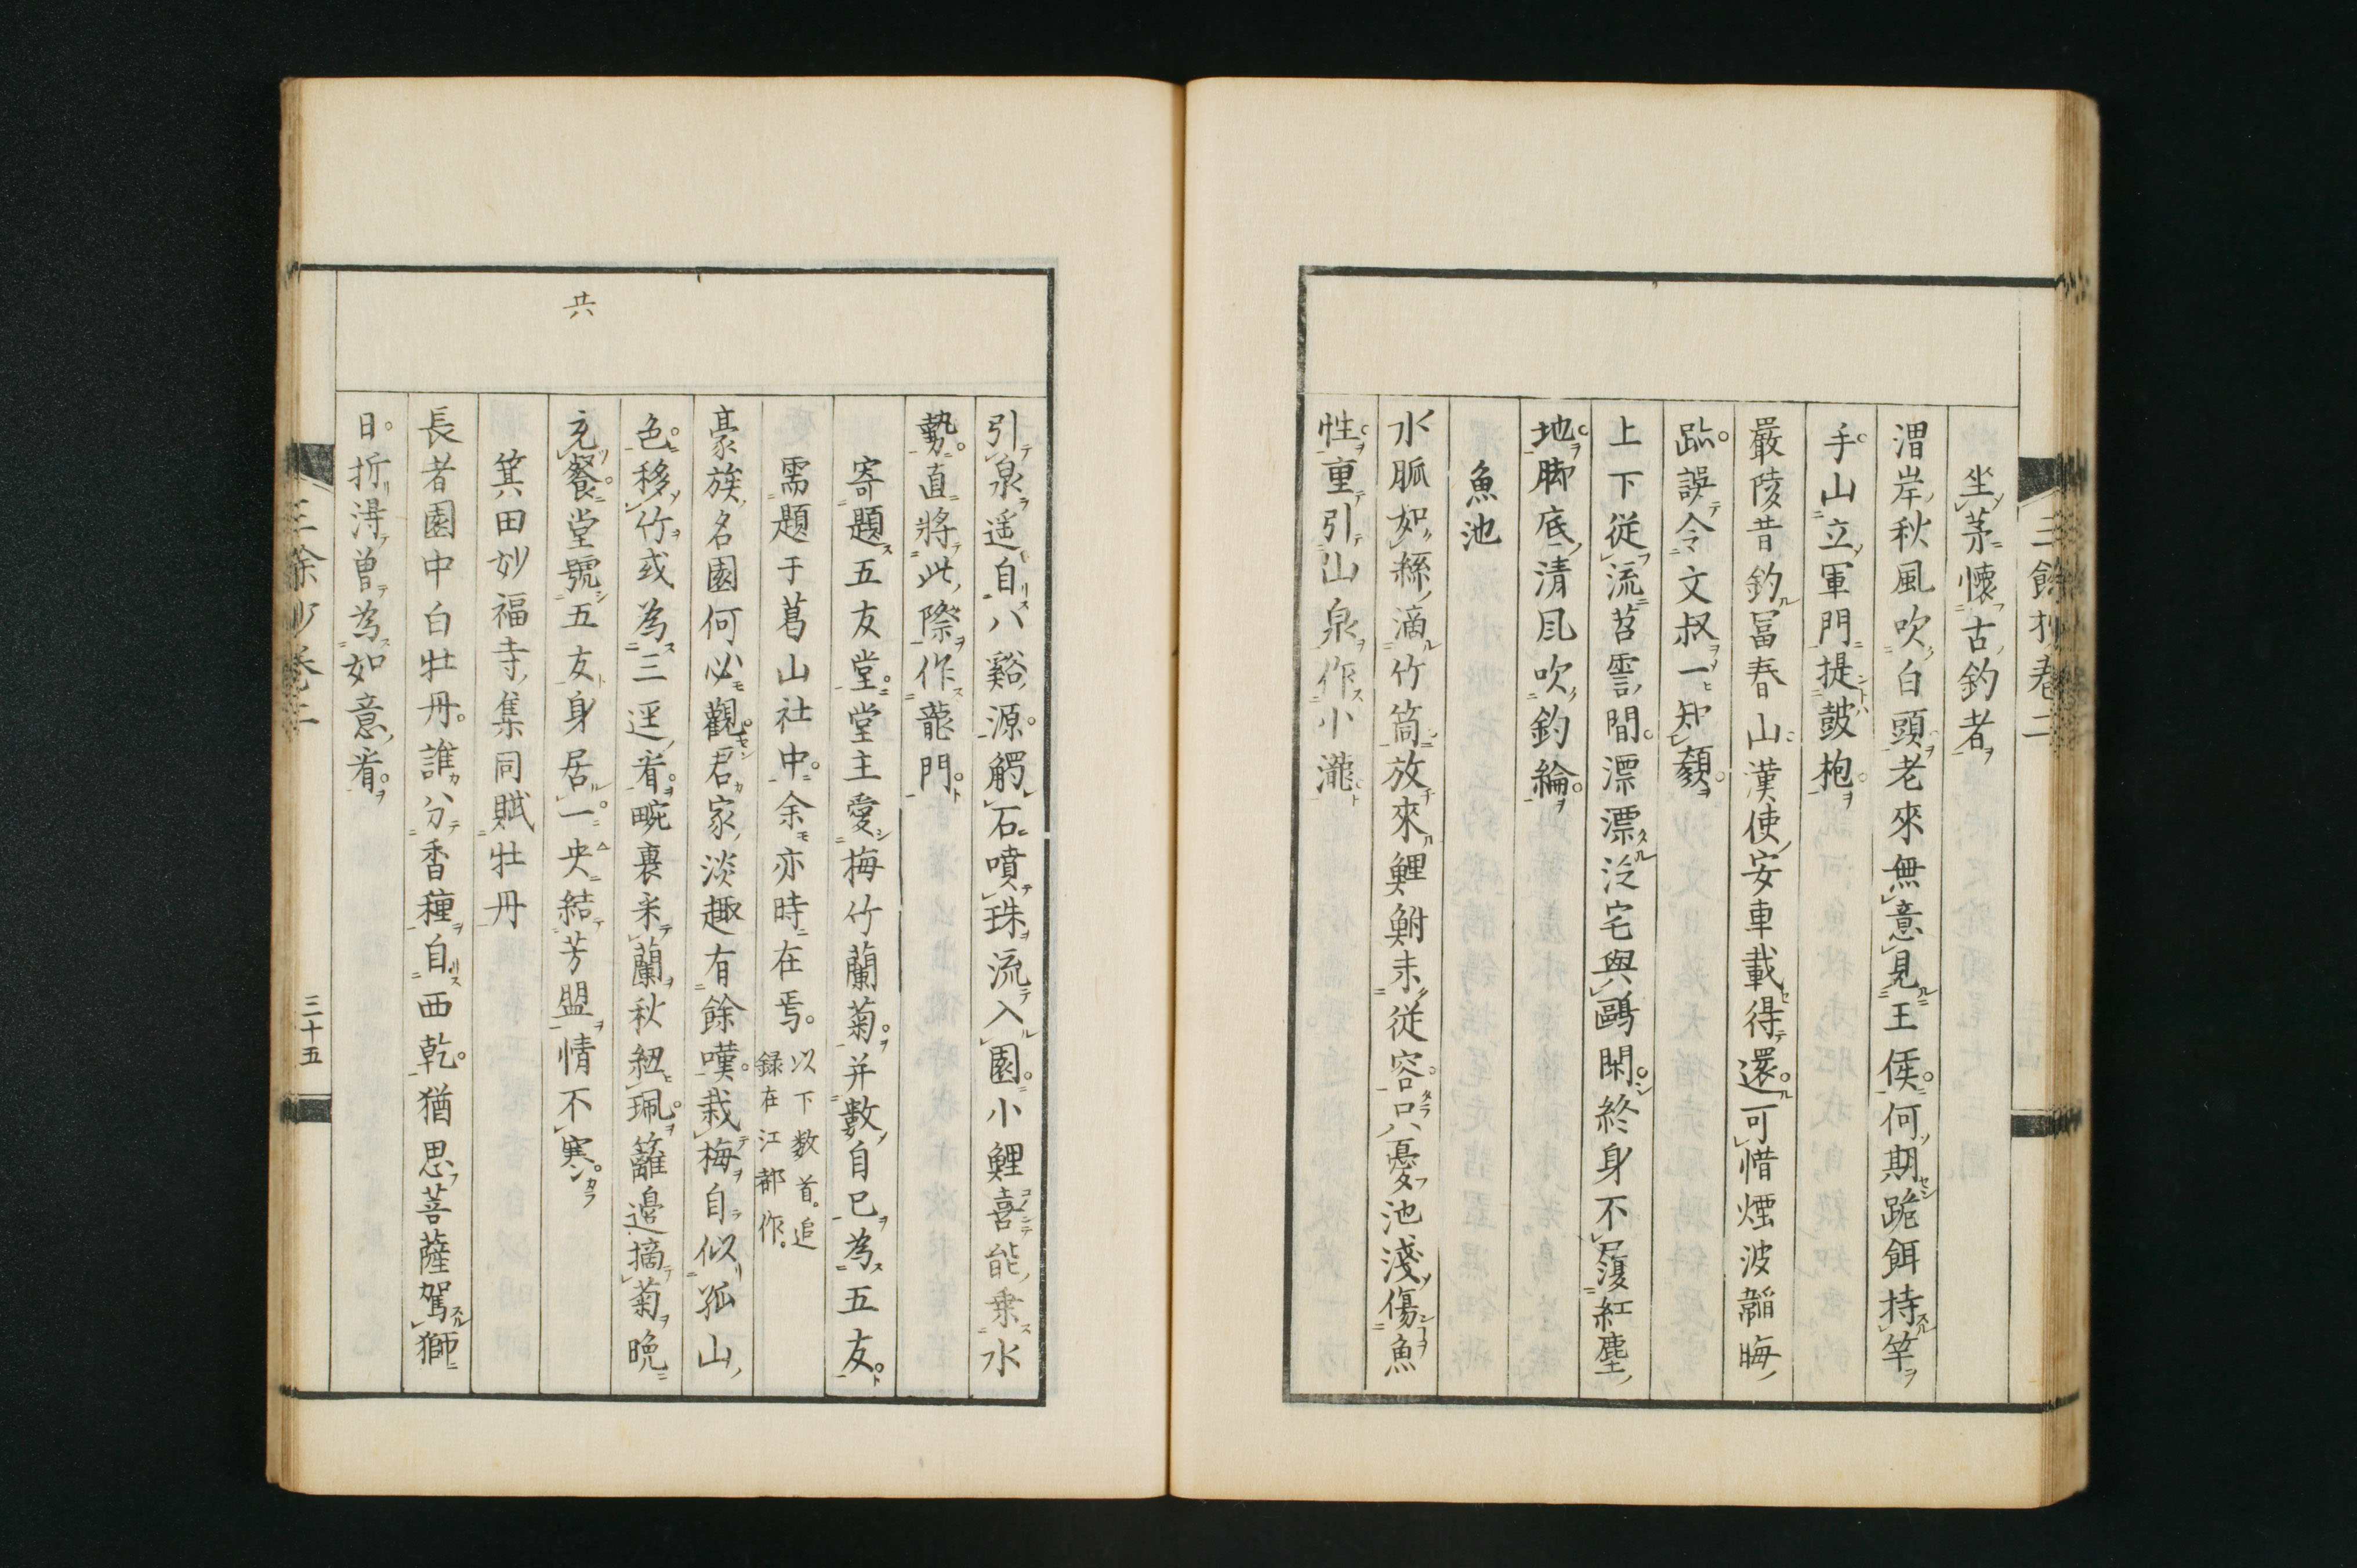 三餘抄卷二
坐茅懷古釣者
渭岸秋風吹白頭。老來無意見王侯。何期跪餌持竿
手。山立軍門提皷枹。
嚴陵昔釣冨春山。漢使安車載得還。可惜煙波韜晦
跡。誤令文叔一知顏。
上下從流苕霅間。漂漂泛宅與鷗閑。終身不履紅塵
地。脚底清風吹釣綸。
魚池
水脈如絲滴竹筒。放來鯉鮒未從容。只憂池淺傷魚
性。重引山泉作小瀧
引泉遥自八谿源。觸石噴珠流入園。小鯉喜能乗水
勢。直將此際作龍門。
寄題五友堂。堂主愛梅竹蘭菊。并數自己為五友。
需題于葛山社中。余亦時在焉。以下数首。追
録在江都作。
豪族名園何必觀。君家淡趣有餘嘆。栽梅自似孤山
色。移竹或為三逕看。畹裏采蘭秋紉珮。籬邊摘菊晩
充餐。堂號五友身居一。央結芳盟情不寒。
箕田妙福寺集同賦牡丹
長者園中白牡丹。誰分香種自西乾。猶思菩薩駕獅
日。折得曾為如意看。
共
三餘抄卷二
三十五